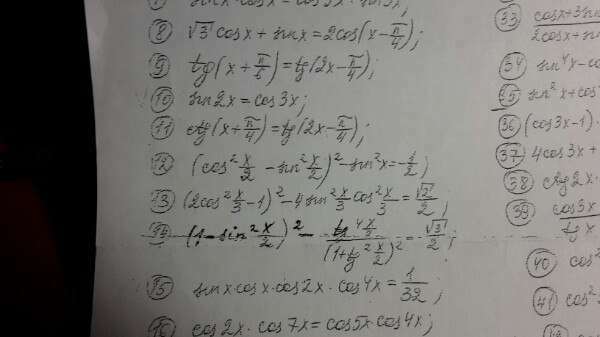 8 √3 cosx + sinx = 2cos(x - π/4);
9 tg(x + π/5) = tg(2x - π/4);
10 sin2x = cos3x;
11 ctg(x + π/4) = tg(2x - π/4);
12 (cos² x/2 - sin² x/2)² - sin²x = -1/2;
13 (2cos² x/3 - 1)² - 4sin² x/3 cos² x/3 = √2/2;
14 (1 - sin² x/2)² - tg⁴ x/2 / (1 + tg² x/2)² = -√3/2;
15 sinx·cosx·cos2x·cos4x = 1/32;
16 cos2x·cos7x = cos5x·cos4x;
33 cosx + 3sin / 2cosx + sin
34 sin⁴x - co
35 sin²x + cos
36 (cos3x - 1)·
37 4cos3x +
38 ctg2x·
39 cos3x / tgx
40 cos²
41 cos²